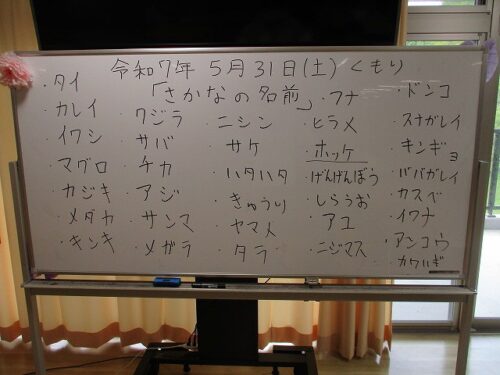 令和7年 5月31日(土) くもり
「さかなの名前」
・タイ
・カレイ
・イワシ
・マグロ
・カジキ
・メダカ
・キンキ
・クジラ
・サバ
・チカ
・アジ
・サンマ
・メガラ
・ニシン
・サケ
・ハタハタ
・きゅうり
・ヤマメ
・タラ
・フナ
・ヒラメ
・ホッケ
・げんげんぼう
・しらうお
・アユ
・ニジマス
・ドンコ
・スナガレイ
・キンギョ
・ババガレイ
・カスベ
・イワナ
・アンコウ
・カワハギ